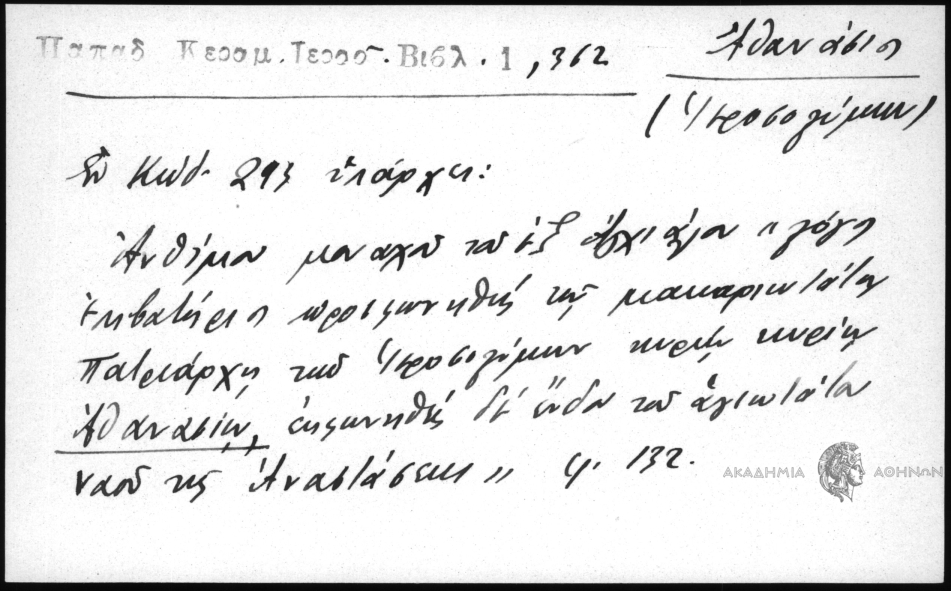 Παπαδ. Κεραμ. Ιεροσ. Βιβλ. 1, 362
Ἀθανάσιος
(Ἱεροσολύμων)
Ἐν Κώδ. 293 ὑπάρχει:
Ἀνθίμου μοναχοῦ τοῦ ἐξ Ἀγχιάλου „ λόγος
ἐπιβατήριος προσφωνηθεὶς τῷ μακαριωτάτῳ
Πατριάρχῃ τῶν Ἱεροσολύμων κυρίῳ κυρίῳ
Ἀθανασίῳ, ἐκφωνηθεὶς δὲ ἔνδον τοῦ ἁγιωτάτου
ναοῦ τῆς Ἀναστάσεως „ φ. 132.
ΑΚΑΔΗΜΙΑ ΑΘΗΝΩΝ